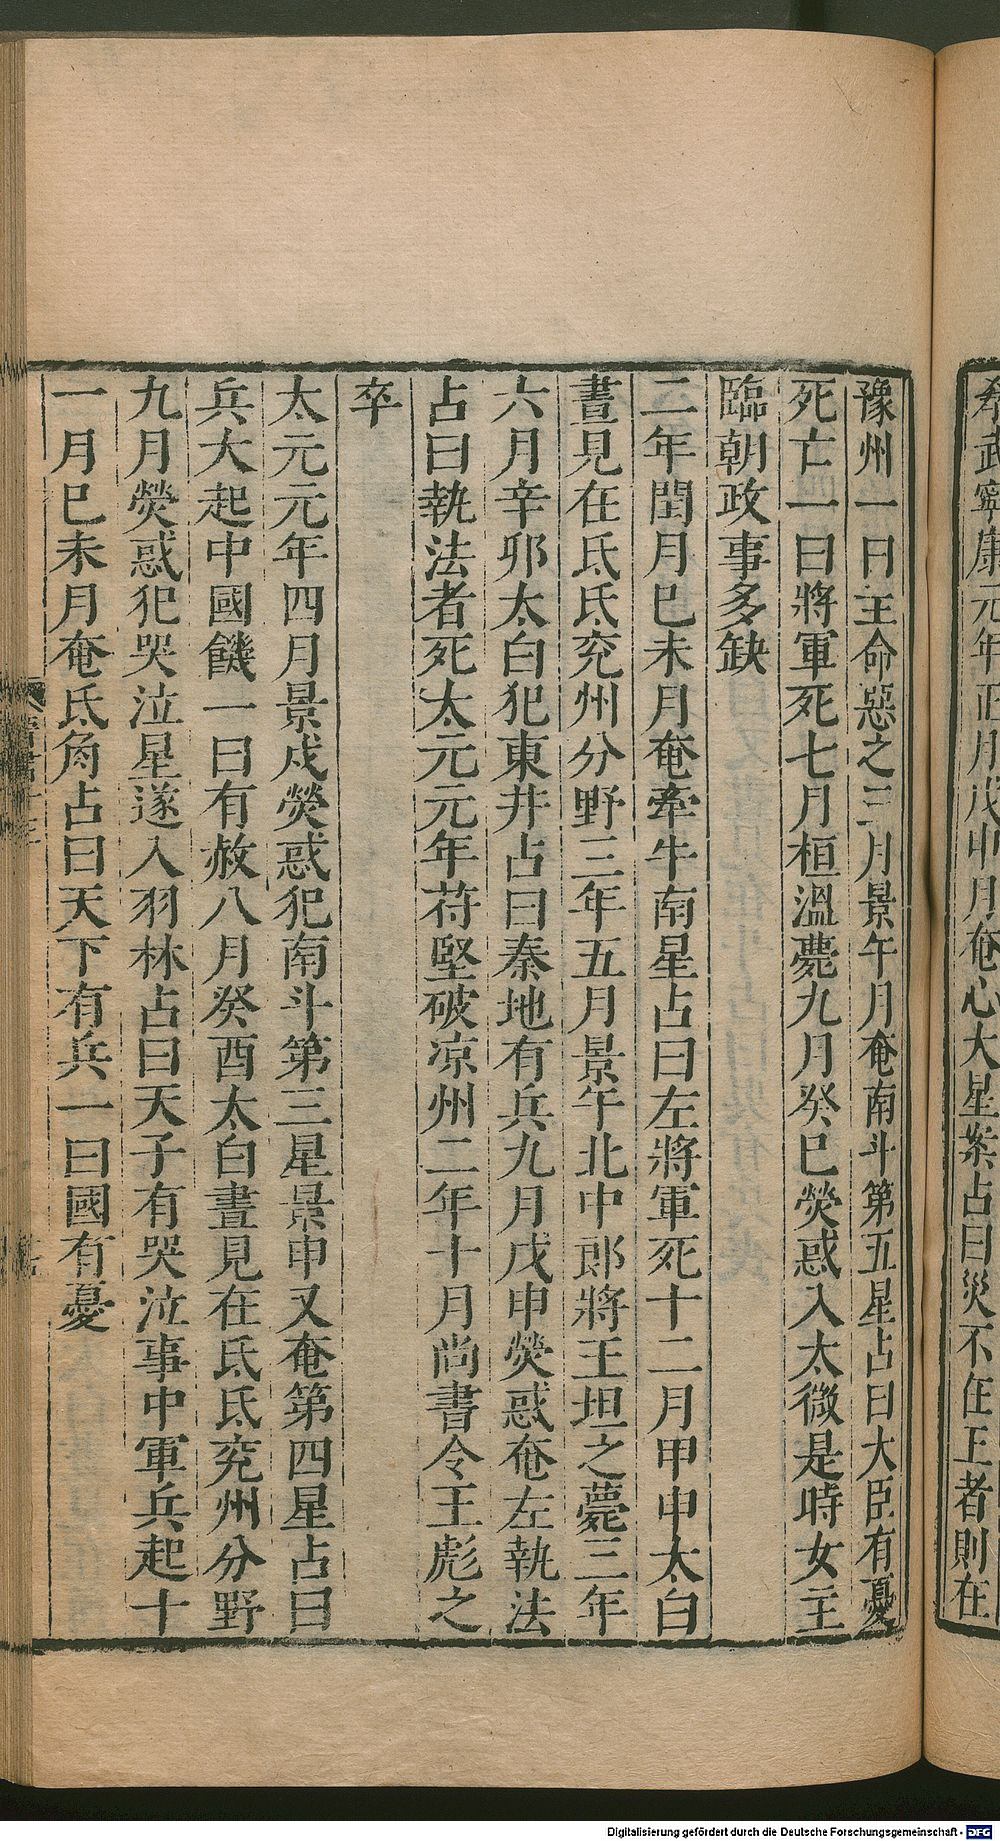 孝武寧康元年正月戊申月奄心大星案占曰災不在王者則在
豫州一曰主命惡之三月景午月奄南斗第五星占曰大臣有憂
死亡一曰將軍死七月桓溫薨九月癸巳熒惑入太微是時女主
臨朝政事多缺
二年閏月巳未月奄牽牛南星占曰左將軍死十二月甲申太白
晝見在氐氐兖州分野三年五月景午北中郎將王坦之薨三年
六月辛夘太白犯東井占曰秦地有兵九月戊申熒惑奄左執法
占曰執法者死太元元年苻堅破凉州二年十月尚書令王彪之
卒
太元元年四月景戍熒惑犯南斗第三星景申又奄第四星占曰
兵大起中國饑一曰有赦八月癸酉太白晝見在氐氐兖州分野
九月熒惑犯哭泣星遂入羽林占曰天子有哭泣事中軍兵起十
一月巳未月奄氐角占曰天下有兵一曰國有憂
Digitalisierung gefördert durch die Deutsche Forschungsgemeinschaft - DFG